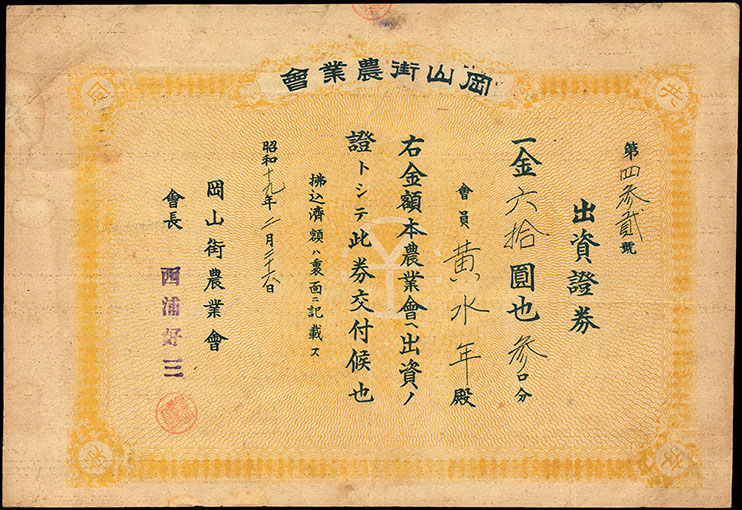 岡山街農業會
第四參貳號
出資證券
一金六拾圓也 參口分
會員 黄水年殿
右金額本農業會ヘ出資ノ
證トシテ此券交付候也
拂込濟額ハ裏面ニ記載ス
昭和十九年二月二十六日
岡山街農業會
會長 西浦好三
共
同